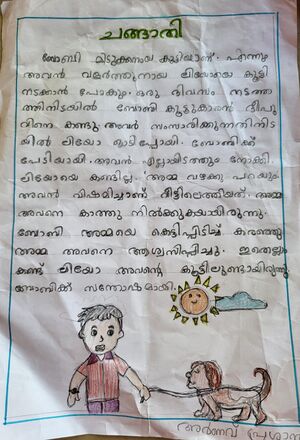 ചങ്ങാതി
ബോബി മിടുക്കനായ കുട്ടിയാണ്. എന്നും
അവൻ വളർത്തുനായ ലിയോയെ കൂട്ടി
നടക്കാൻ പോകും. ഒരു ദിവസം നടത്ത
ത്തിനിടയിൽ ബോബി കൂട്ടുകാരൻ ദീപു
വിനെ കണ്ടു. അവർ സംസാരിക്കുന്നതിനിട
യിൽ ലിയോ ഓടിപ്പോയി. ബോബിക്ക്
പേടിയായി. അവൻ എല്ലായിടത്തും നോക്കി.
ലിയോയെ കണ്ടില്ല. അമ്മ വഴക്കു പറയും.
അവൻ വിഷമിച്ചാണ് വീട്ടിലെത്തിയത്. അമ്മ
അവനെ കാത്തു നിൽക്കുകയായിരുന്നു.
ബോബി അമ്മയെ കെട്ടിപ്പിടിച്ച് കരഞ്ഞു.
അമ്മ അവനെ ആശ്വസിപ്പിച്ചു. ഇതെല്ലാം
കണ്ട് ലിയോ അവന്റെ കൂട്ടിലുണ്ടായിരുന്നു.
ബോബിക്ക് സന്തോഷമായി.
അർണവ് പ്രശാന്